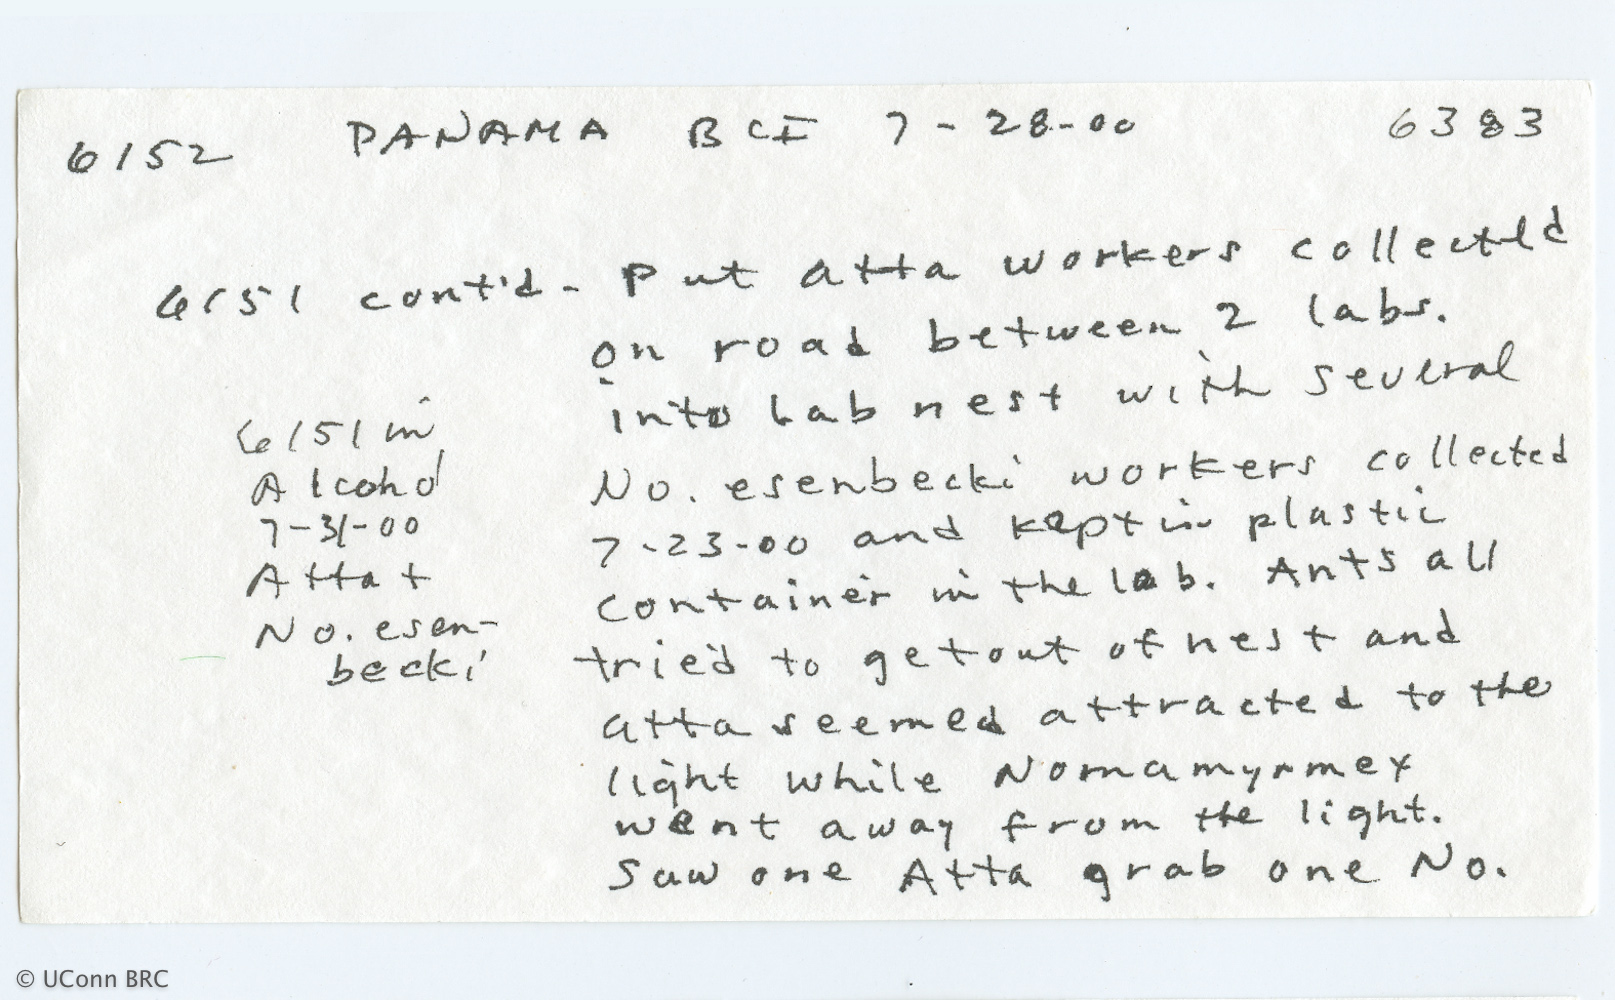 6152 PANAMA BCI 7-28-00 6383
6151 cont'd - Put atta workers collected
on road between 2 labs.
into lab nest with several
No. esenbecki workers collected
7-23-00 and kept in plastic
container in the lab. Ants all
tried to get out of nest and
atta seemed attracted to the
light while Nomamyrmex
went away from the light.
Saw one Atta grab one No.
6151 in
Alcohol
7-31-00
Atta +
No. esen-
becki
© UConn BRC